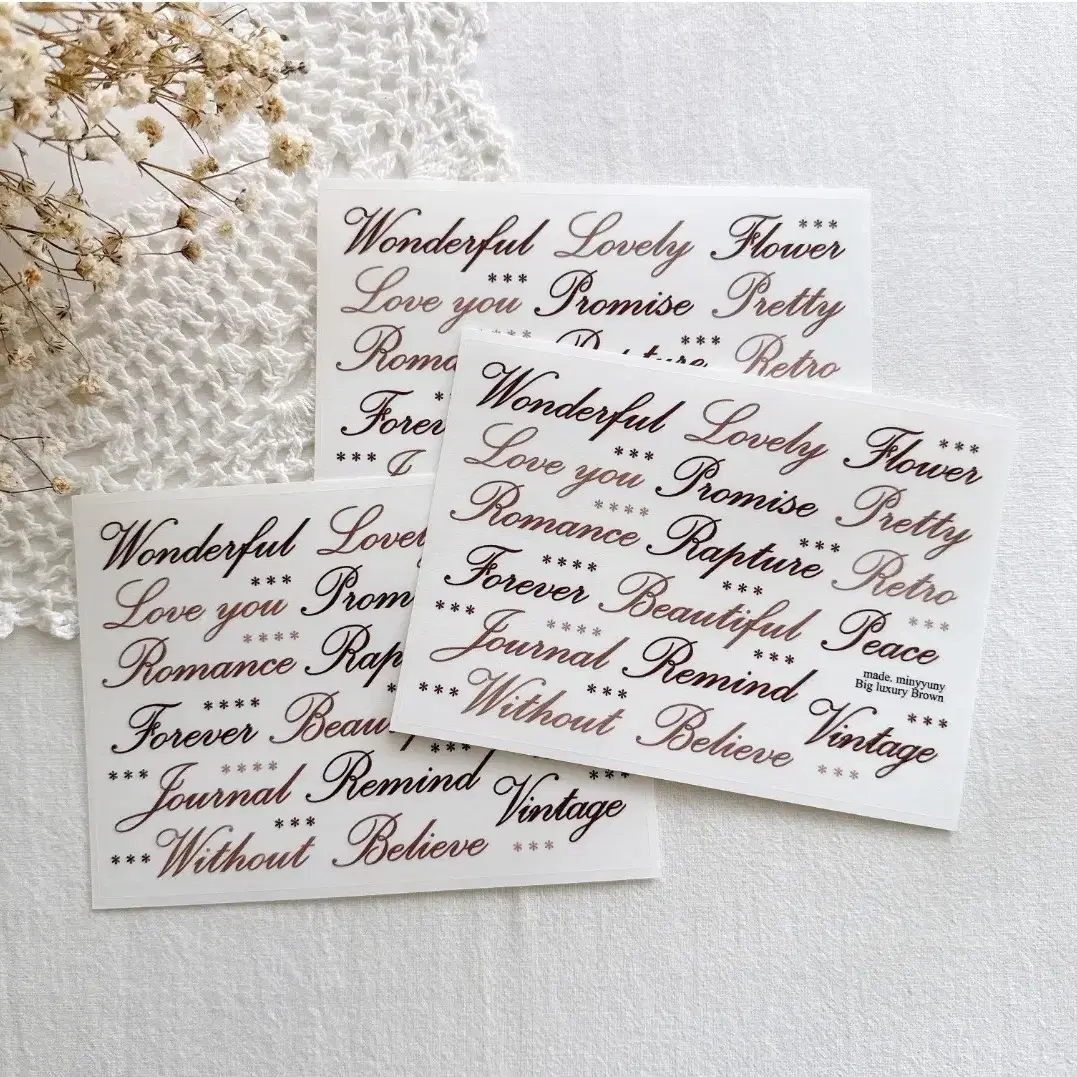 Wonderful Lovely Flower ***
Love you *** Promise Pretty
Retro ***
***
Wonderful Lovely Flower ***
Love you *** Promise Pretty
Romance **** Rapture *** Retro
Forever **** Beautiful *** Peace ***
*** Journal **** Remind ***
made. minyyuny
Big luxury Brown
*** Without *** Believe *** Vintage ***
Wonderful
Love you ***
Romance ****
Forever ****
*** Journal **** Remind *** Vintage
*** Without *** Believe ***